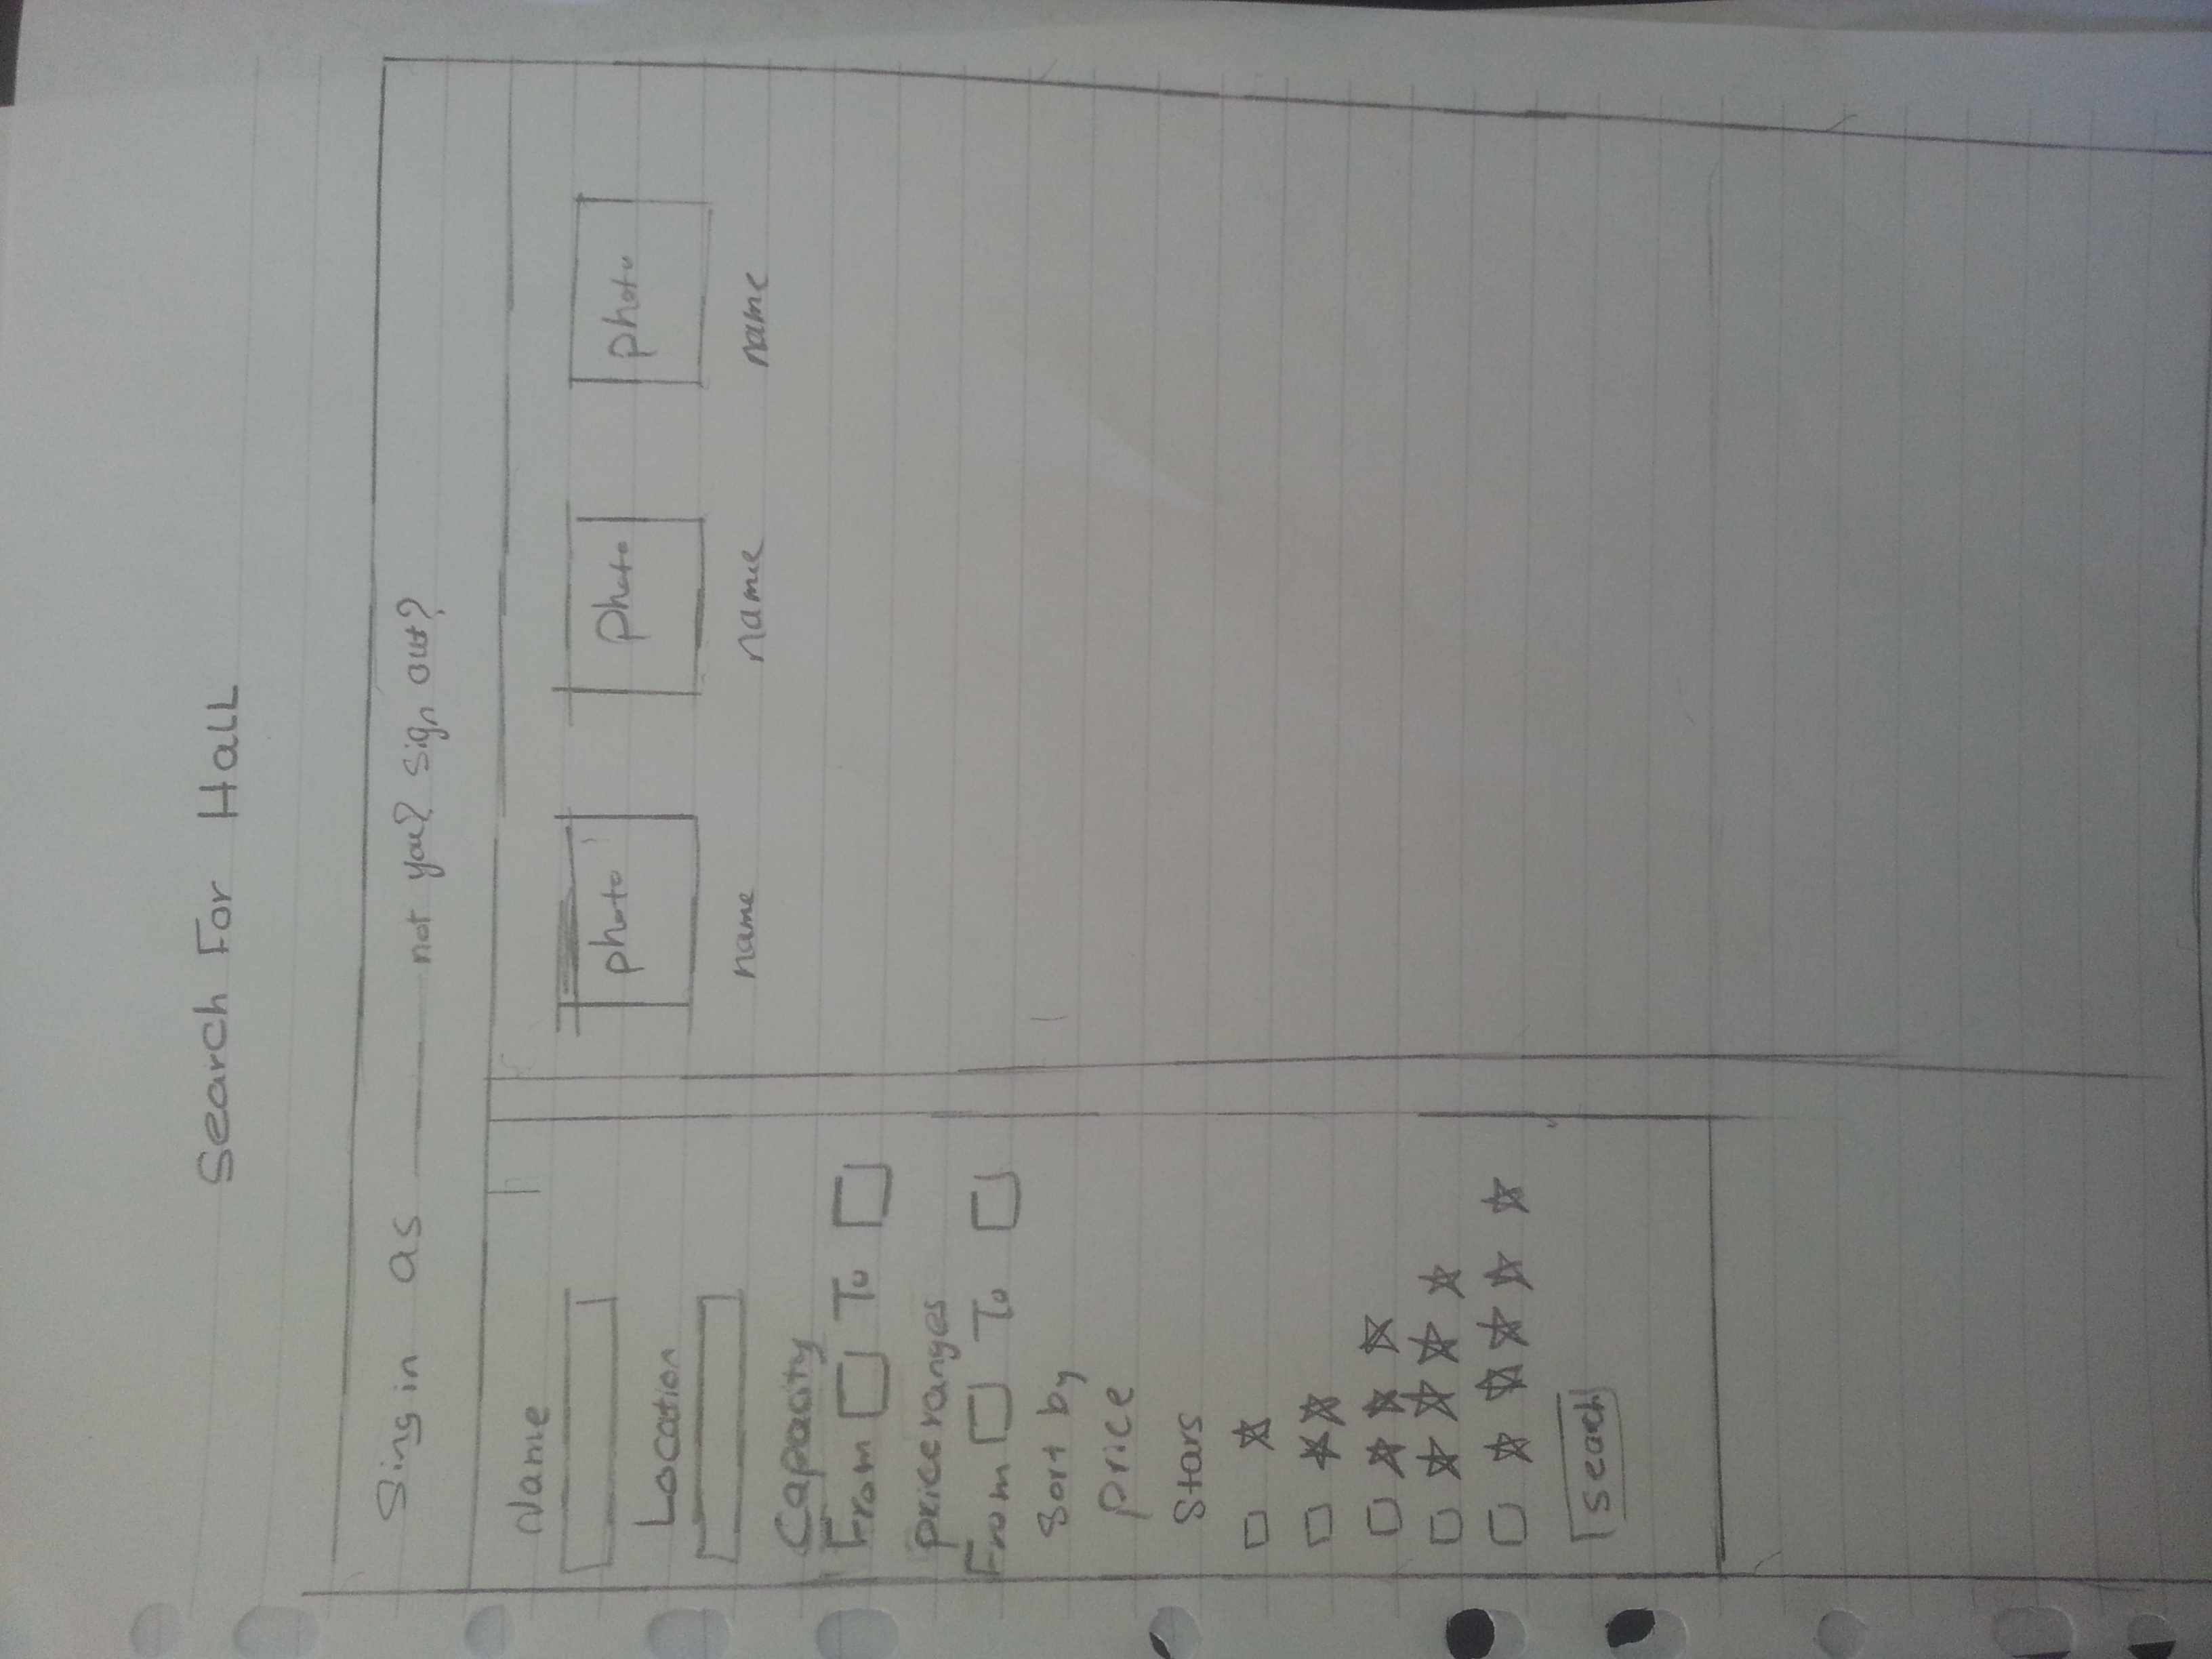 Search For Hall
Sing in as ____ not you? Sign out?
Name
Location
Capacity
From To
price ranges
From To
Sort by
price
Stars
Search
photo Photo photo
name name name